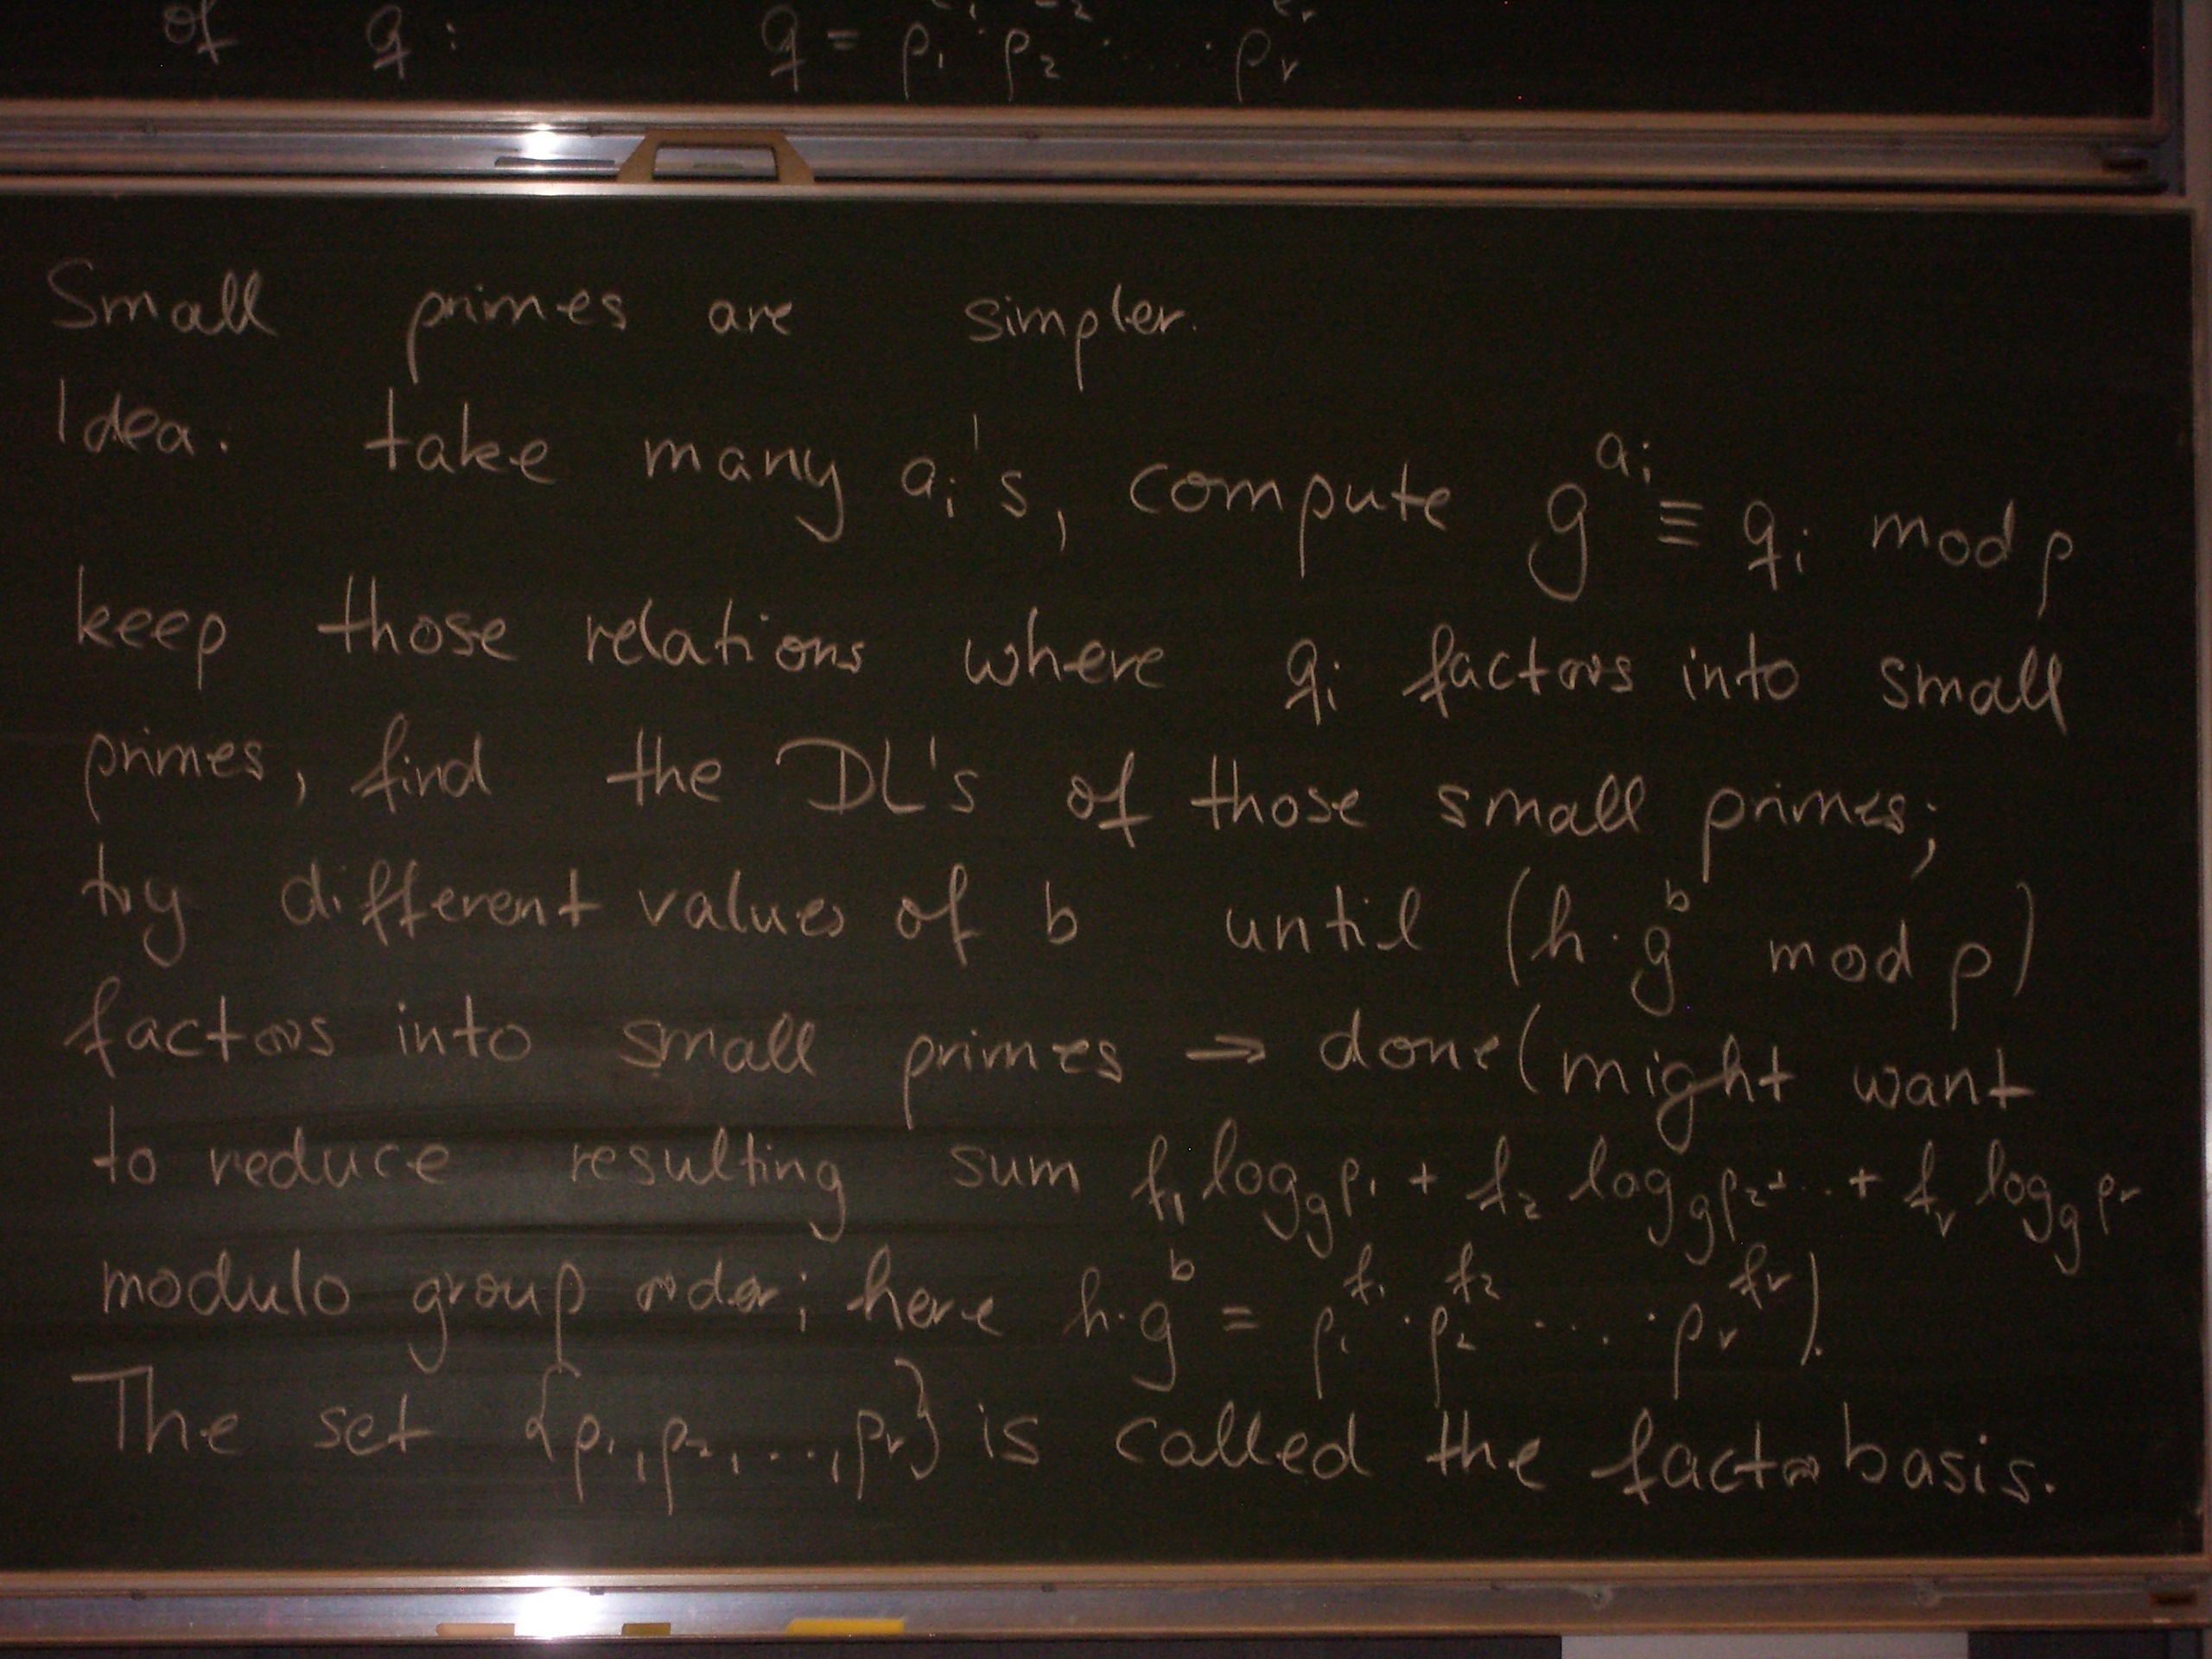 of q : q = p₁^e₁ · p₂^e₂ · ... · pᵣ^eᵣ
Small primes are simpler.
Idea. take many aᵢ's, compute g^aᵢ ≡ qᵢ mod p
keep those relations where qᵢ factors into small
primes, find the DL's of those small primes;
try different values of b until (h·g^b mod p)
factors into small primes → done (might want
to reduce resulting sum f₁ log_g p₁ + f₂ log_g p₂ + .. + fᵣ log_g pᵣ
modulo group order; here h·g^b = p₁^f₁ · p₂^f₂ · ... · pᵣ^fᵣ).
The set {p₁, p₂, ..., pᵣ} is called the factor basis.